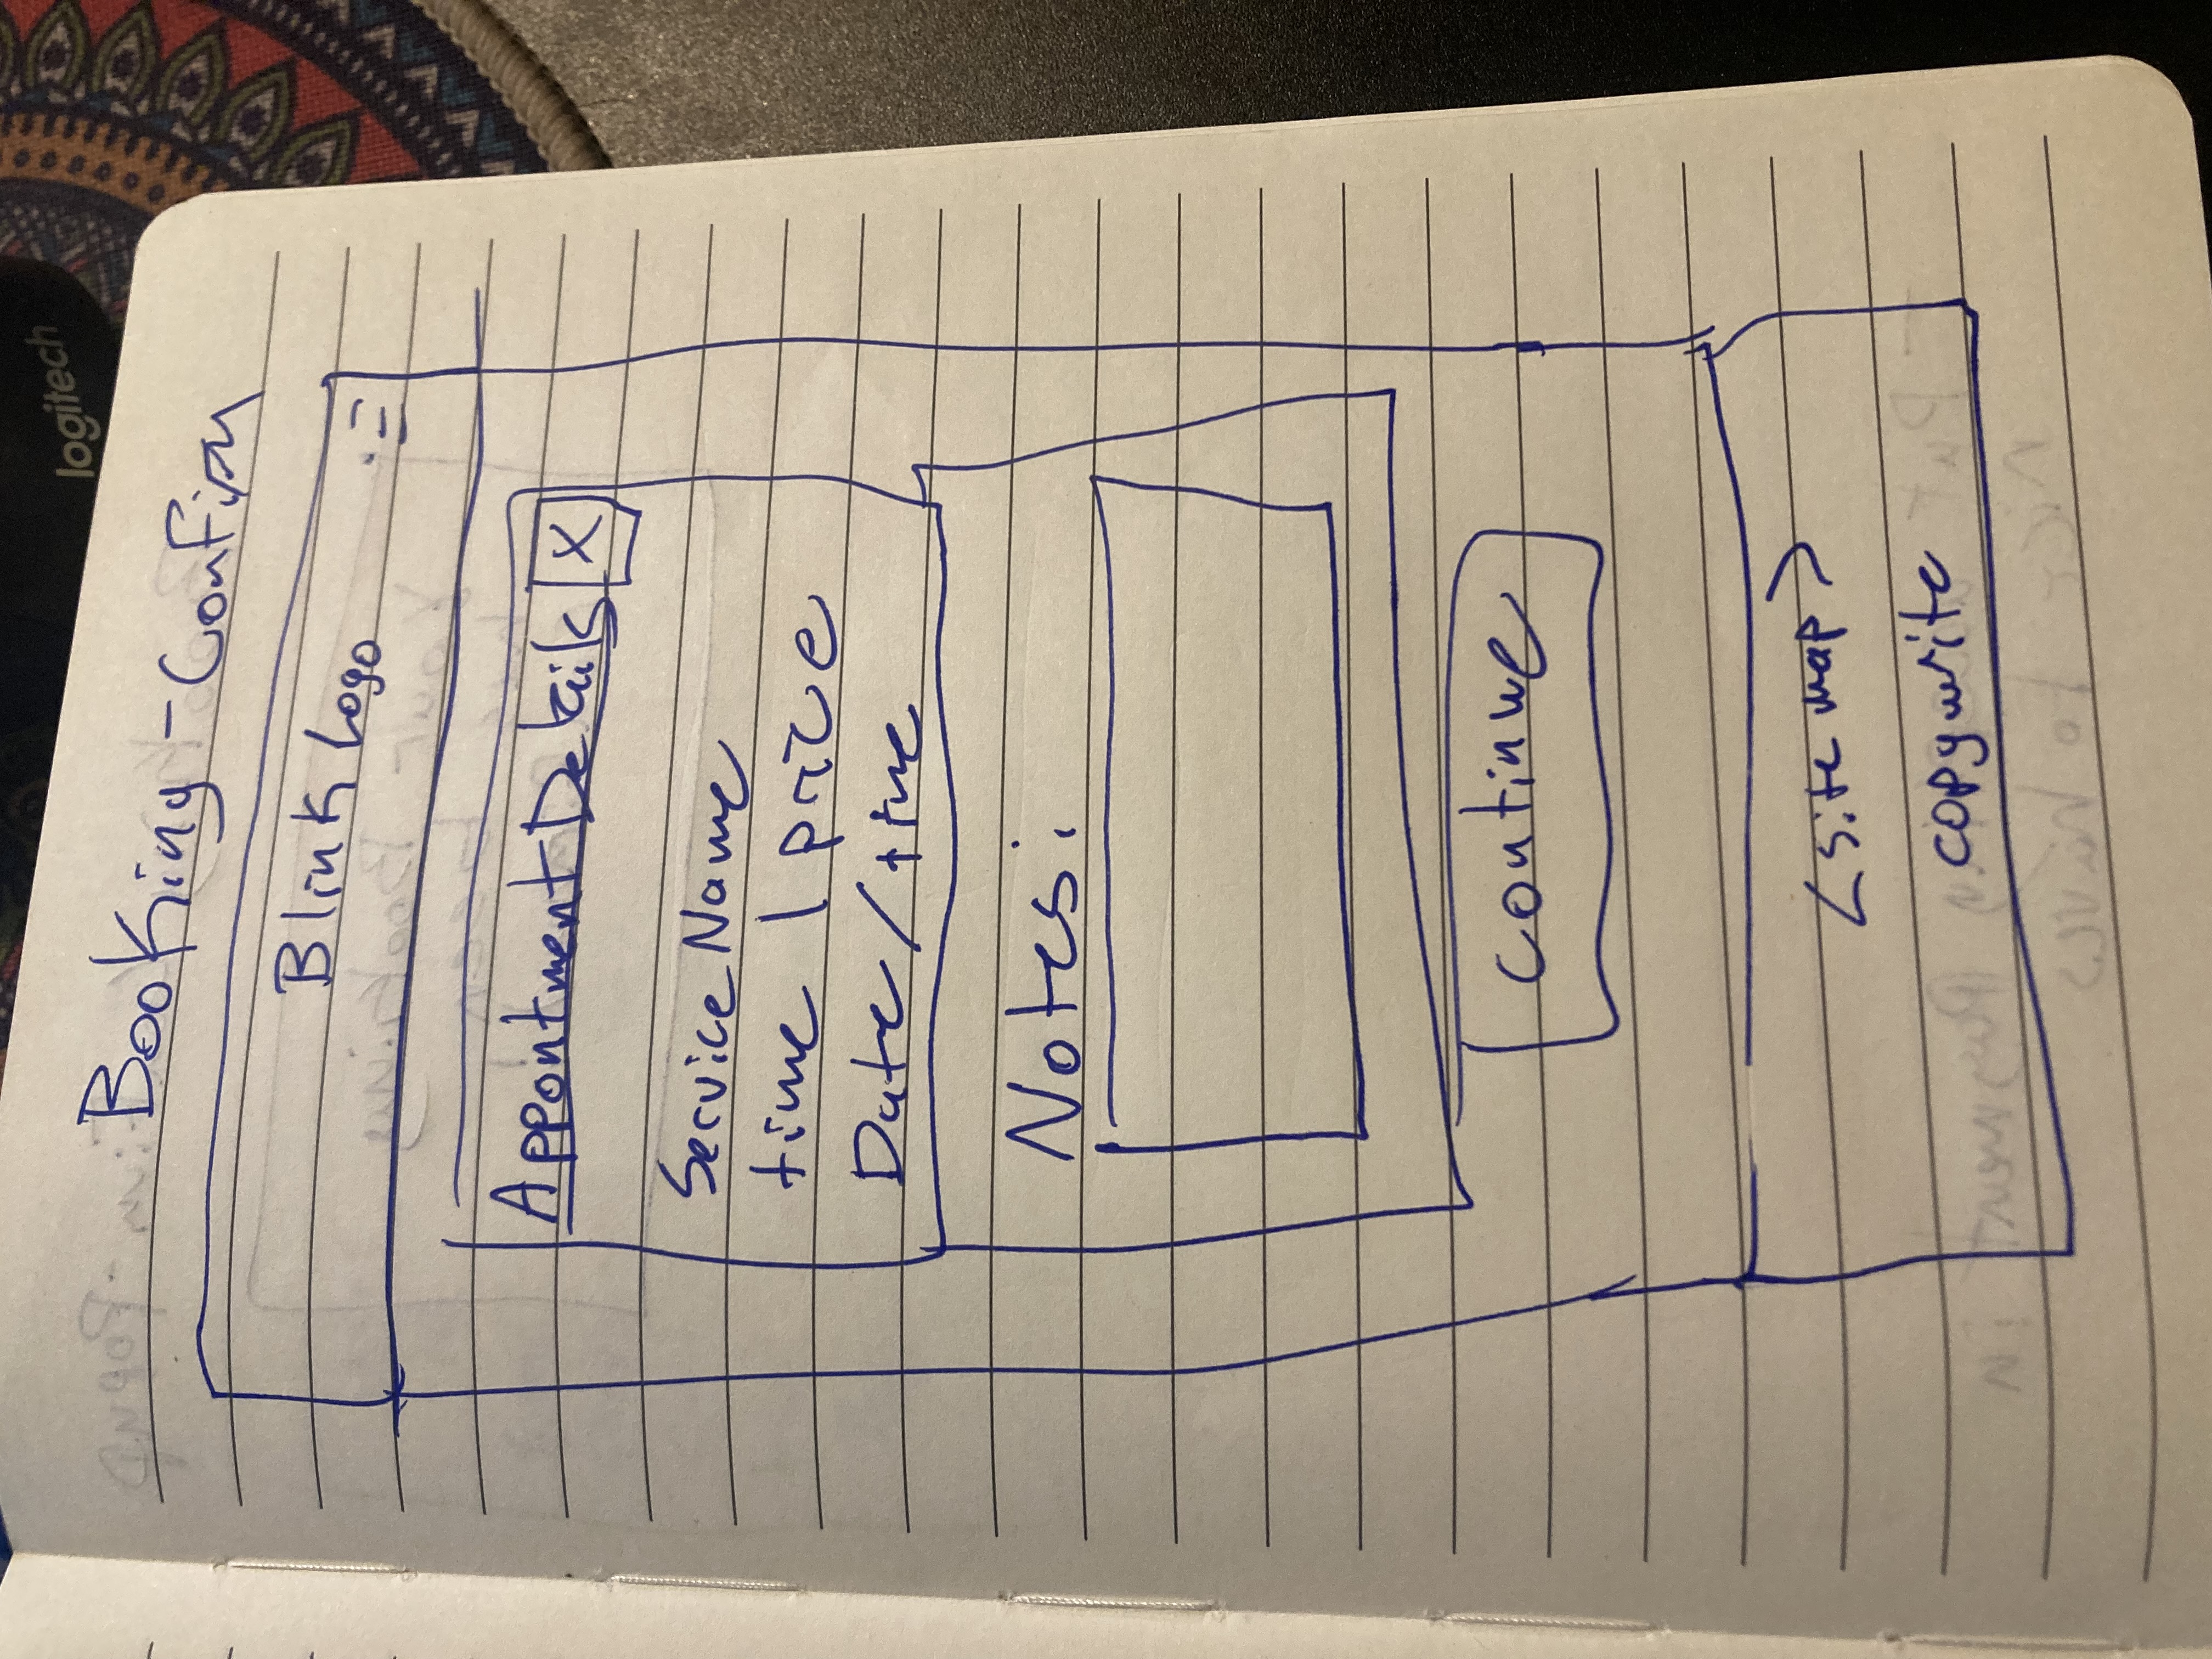 logitech
Booking - Confirm
Blink Logo
Appontment Details X
Service Name
time | price
Date / time
Notes:
Continue
<site map>
copywrite